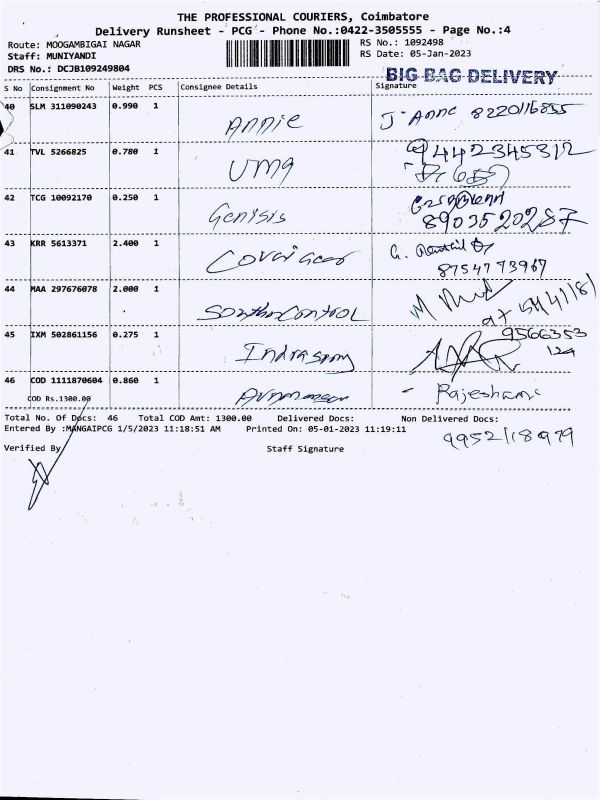 THE PROFESSIONAL COURIERS, Coimbatore
Delivery Runsheet - PCG - Phone No.:0422-3505555 - Page No.:4
Route: MOOGAMBIGAI NAGAR RS No.: 1092498
Staff: MUNIYANDI RS Date: 05-Jan-2023
DRS No.: DCJB109249804
BIG BAG DELIVERY
S No Consignment No Weight PCS Consignee Details Signature
40 SLM 311090243 0.990 1 Annie J. Anne
41 TVL 5266825 0.780 1 Uma 9442345312
42 TCG 10092170 0.250 1 Genisis
8903520287
43 KRR 5613371 2.400 1
8754773967
44 MAA 297676078 2.000 1 Southn Control
45 IXM 502861156 0.275 1 9566353
124
46 COD 1111870604 0.860 1 - Rajeshwari
COD Rs.1300.00
Total No. Of Docs: 46 Total COD Amt: 1300.00 Delivered Docs: Non Delivered Docs:
Entered By :MANGAIPCG 1/5/2023 11:18:51 AM Printed On: 05-01-2023 11:19:11
9952118979
Verified By Staff Signature